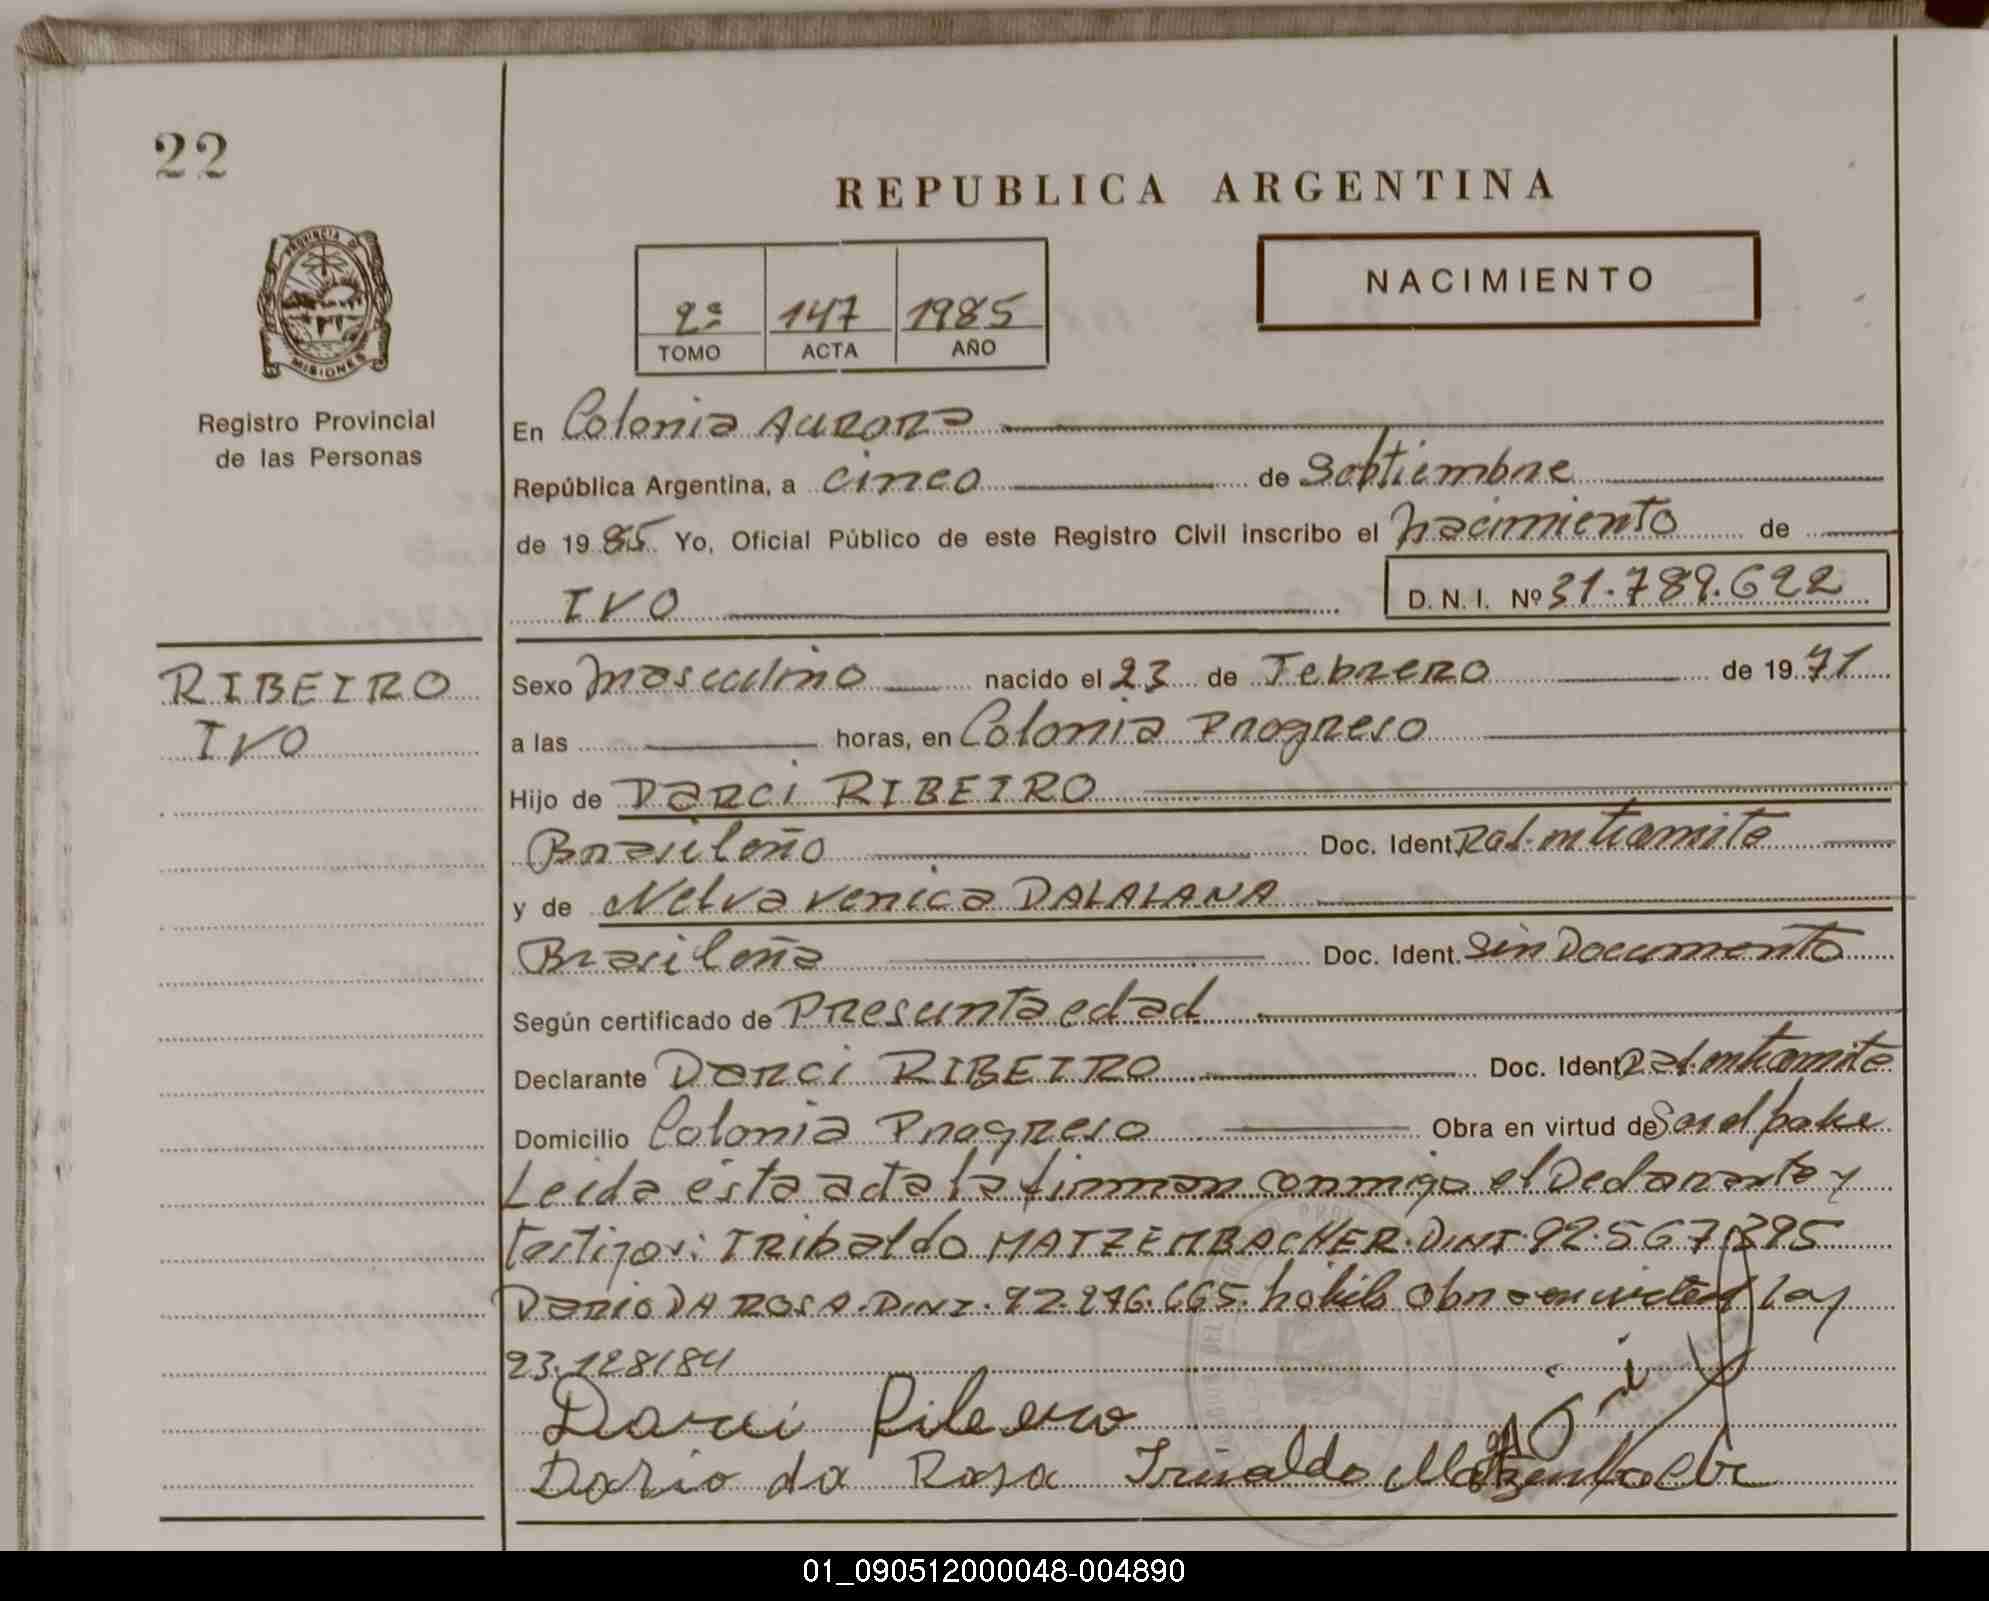 22
REPUBLICA ARGENTINA
PROVINCIA DE
MISIONES
Registro Provincial
de las Personas
2º 147 1985
TOMO ACTA AÑO
NACIMIENTO
En Colonia Aurora
República Argentina, a cinco de Septiembre
de 1985 Yo, Oficial Público de este Registro Civil inscribo el nacimiento de
IVO D. N. I. Nº 31.789.622
RIBEIRO
IVO
Sexo masculino nacido el 23 de Febrero de 1971
a las horas, en Colonia Progreso
Hijo de Darci RIBEIRO
Brasileño Doc. Ident. Rad. en tramite
y de Nelva venica DALALANA
Brasileña Doc. Ident. Sin Documento
Según certificado de Presunta edad
Declarante Darci RIBEIRO Doc. Ident. Rad. en tramite
Domicilio Colonia Progreso Obra en virtud de
Leida esta acta la firman conmigo el Declarante y
testigos: TRibaldo MATZEMBACHER. D.N.I. 92.567.395
Dario DA ROSA. D.N.I. 92.976.665. habiles Obra en virtud ley
23.128/84
Darci Ribeiro
Dario da Rosa
01_090512000048-004890